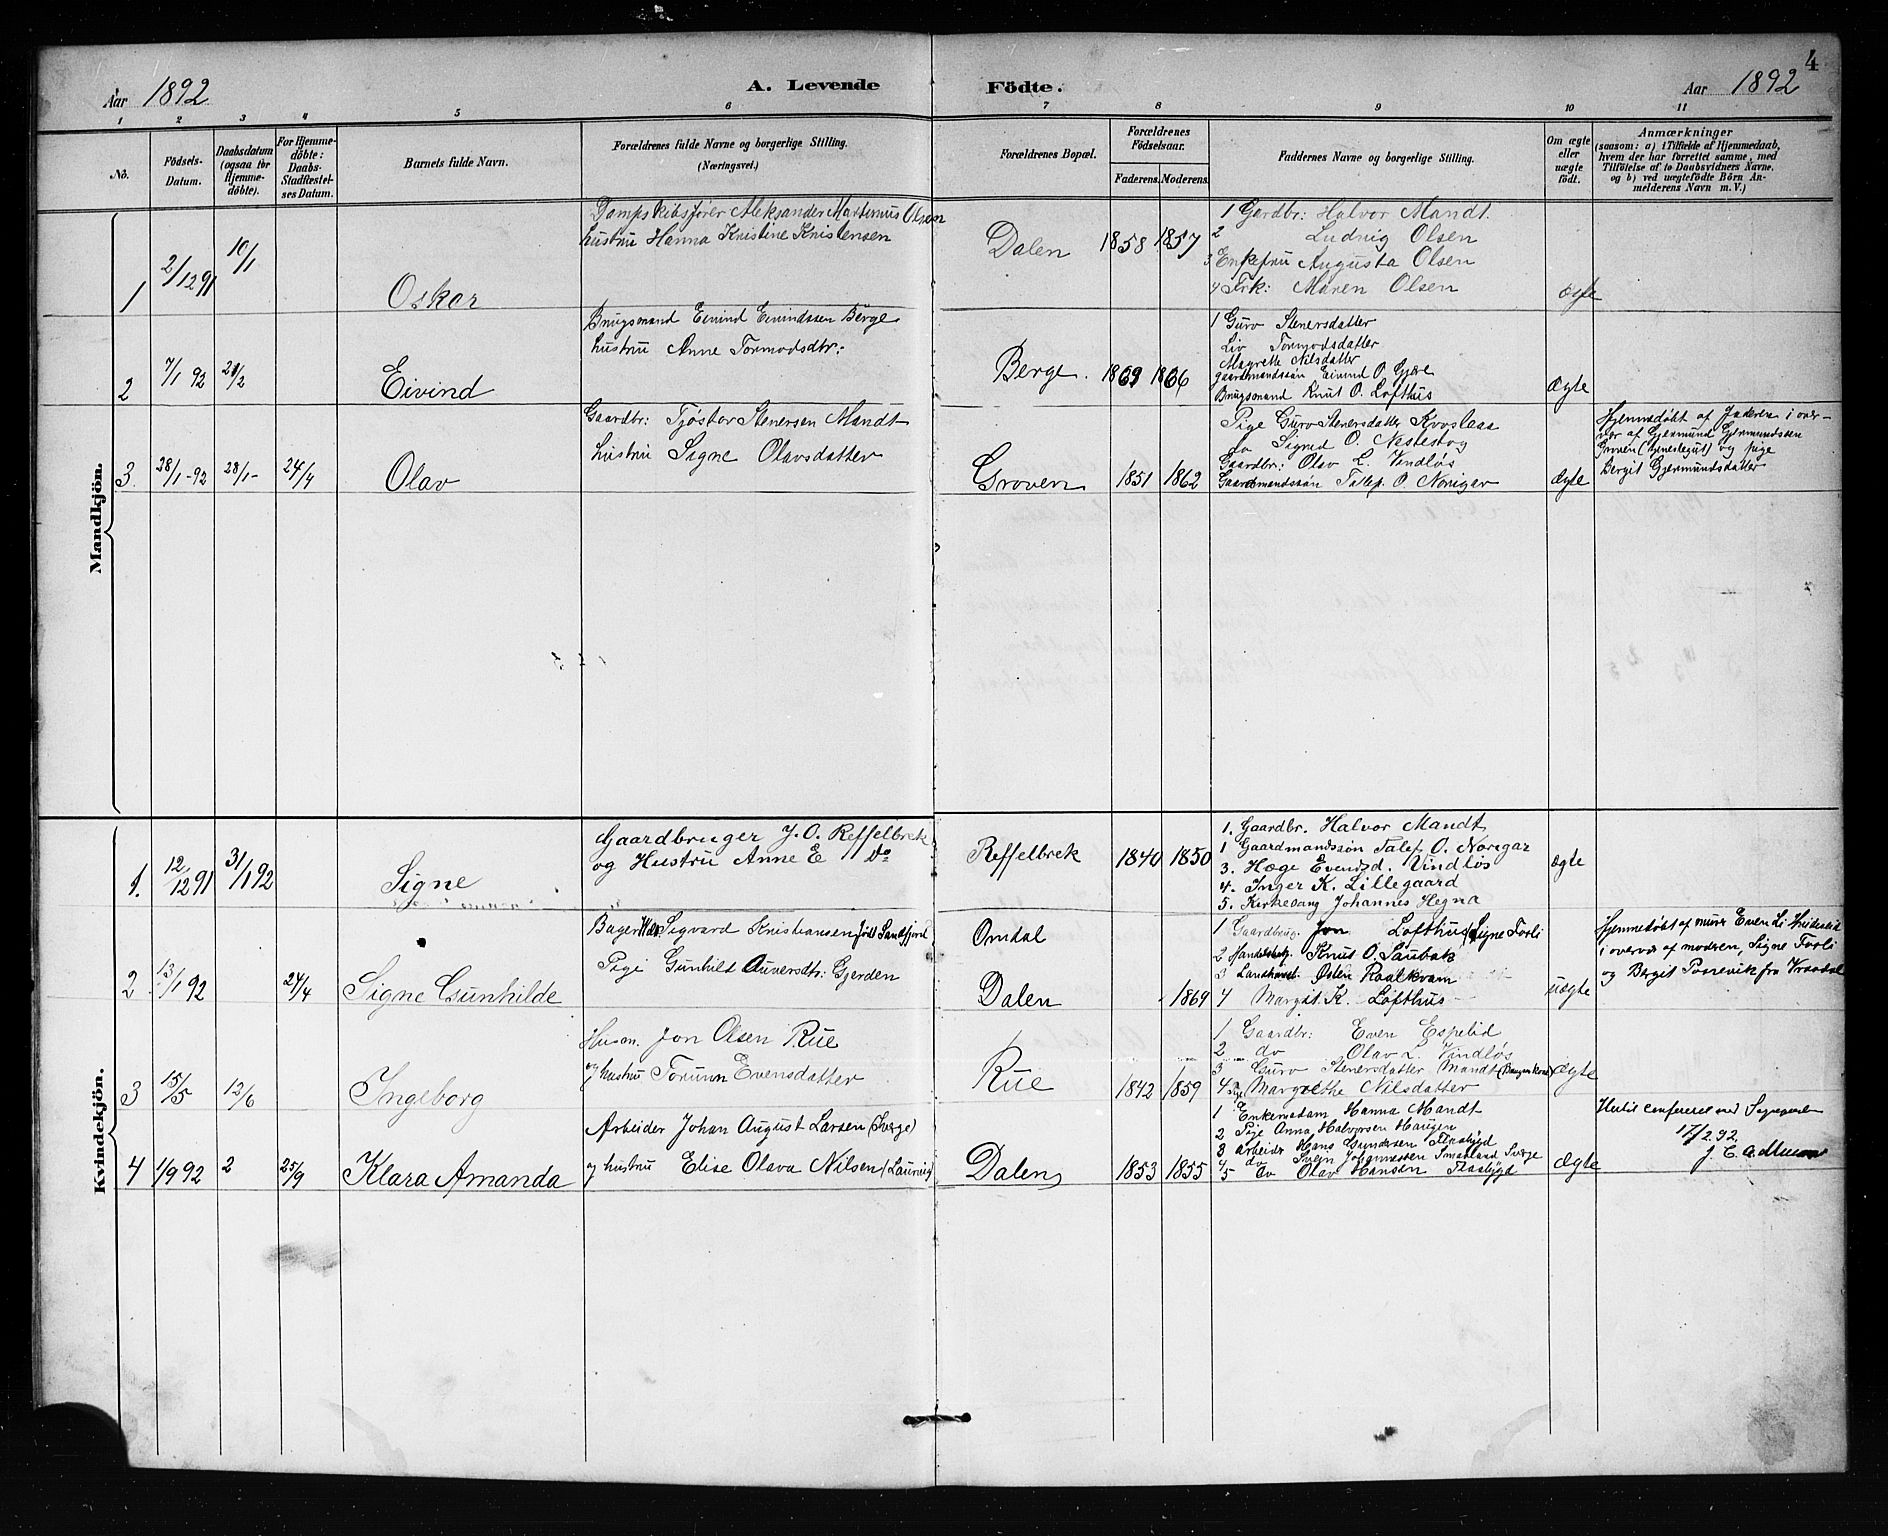 4
Aar 1892
A. Levende Födte.
Aar 1892
1 2 3 4 5 6 7 8 9 10 11
No.
Födsels-Datum.
Daabsdatum (ogsaa for Hjemme-döbte).
For Hjemme-döbte: Daabs-Stadfæstel-ses Datum.
Barnets fulde Navn.
Forældrenes fulde Navne og borgerlige Stilling. (Næringsvei.)
Forældrenes Bopæl.
Forældrenes Födselsaar.
Faderens. Moderens.
Faddernes Navne og borgerlige Stilling.
Om ægte eller uægte födt.
Anmærkninger
(saasom: a) i Tilfælde af Hjemmedaab,
hvem der har forrettet samme, med
Tilföielse af to Daabsvidners Navne,
og b) ved uægtefödte Börn An-
melderens Navn m. V.)
Mandkjön.
1 2/12 91 10/1 Oskar
Dampskibsfører Aleksander Martinius Olsen
hustru Hanna Kristine Kristensen
Dalen 1858 1857
1 Gardbr: Halvor Mandt
2 Ludvig Olsen
3 Enkefru Augusta Olsen
4 Frk: Maren Olsen
ægte
2 7/1 92 21/2 Eivind
Brugsmand Eivind Eivindssen Berge
hustru Anne Tormodsdtr:
Berge. 1869 1866
1 Guro Stenersdatter
Liv Tormodsdatter
Magrette Nilsdatter
gaardmandssön Eivind O. Gjere
Brugsmand Knut O. Lofthus
Ægte
3 28/1-92 28/1- 24/4 Olav
Gaardbr: Tjöstov Stenersen Mandt
hustru Signe Olavsdatter
Groven 1851 1862
Pige Guro Stenersdatter
do Signe O. Nestestog
Gaardbr: Olav L. Vindløs
Gaardmandssön Tallef O. Norigar
Ægte
Hjemmedøbt af Faderen i over-
vær af Gjermund Gjermundssen
Groven (tjenestegut) og pige
Bergit Gjermundsdatter
Kvindekjön.
1. 12/12 91 31/1 92 Signe
Gaardbruger J. O. Reffelbrek
og Hustru Anne E do
Reffelbrek 1840 1850
1. Gaardbr. Halvor Mandt
1 Gaardmandssön Talef O. Norigar
3. Hæge Evensd. Vindløs
4. Inger K. Lillegaard
5. Kirkesang Johannes Hegna
ægte
2 13/1 92 24/4 Signe Gunhilde
Bager Sigvard Kristiansen født Sandefjord
Pige Gunhilt Auversdtr: Gjerden
Omdal
Dalen 1869
1 Gaardbrug. Jon Lofthus Signe Forli
2 Knut O. Laubak
3 Landhand. Østen Raalkvam
4 Margit K. Lofthus
uægte
Hjemmedøbt af murer Even Li
i overvær af modren, Signe Forli
og Bergit fra Vraadal
3 15/5 12/6 Ingeborg
Husm. Jon Olsen Rue
og hustru Torunn Evensdatter
Rue 1842 1859
1 Gaardbr: Even Espelid
2 do Olav L. Vindløs
3 Guro Stenersdatter Mandt
4 Pige Margrethe Nilsdatter
ægte
4 1/9 92 2 25/9 Klara Amanda
Arbeider Johan August Larsen (Sverge)
og hustru Elise Olava Nilsen (Laurvig)
Dalen 1853 1855
1 Enkemadam Hanna Mandt
2 Pige Anna Halvorsen Haugen
3 arbeider Hans Gundersen
4 do Svein Johannessen Smaaland Sverge
5 do Olav Hansen
Ægte
Hertil confereret med
17/2 92